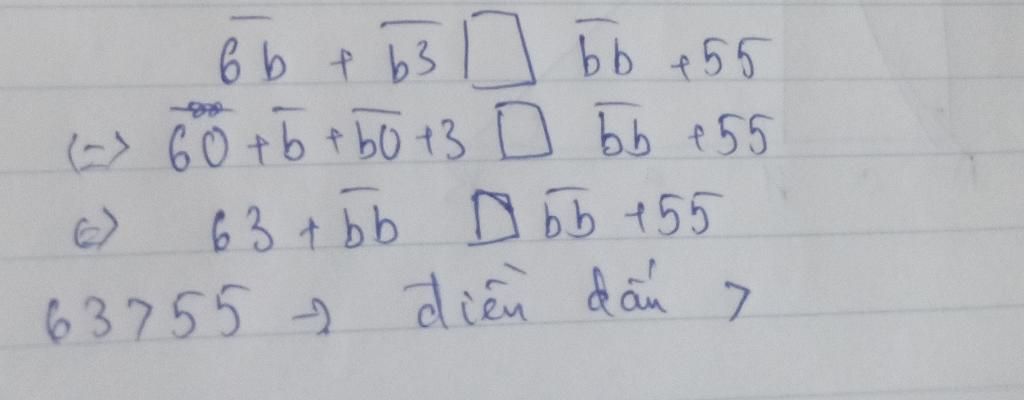 6b + b3 □ bb + 55
(=) 60 + b + b0 + 3 □ bb + 55
(=) 63 + bb □ bb + 55
63 > 55 → điền dấu >